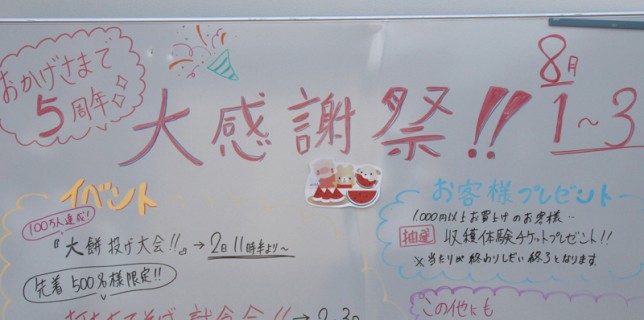 おかげさまで
5周年
大感謝祭!!
8月
1~3
イベント
100万人達成!
『大餅投げ大会!!』→2日11時半より~
先着500名様限定!!
お客様プレゼント
1,000円以上お買上げのお客様…
抽選 収穫体験チケットプレゼント!!
※当たりが終わりしだい終了となります
この他にも